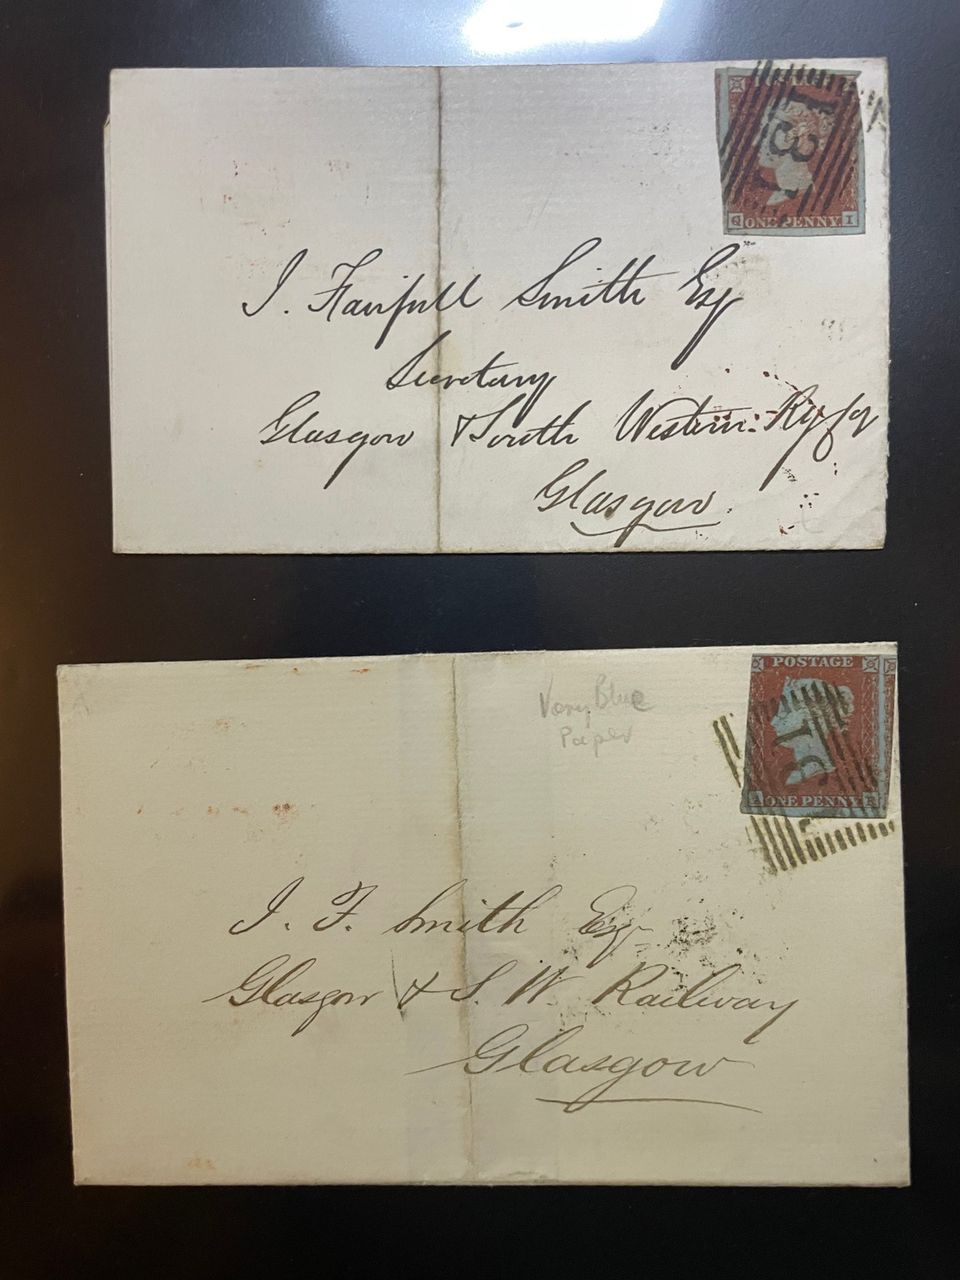 131
Q ONE PENNY I
J. Fairfull Smith Esq
Secretary
Glasgow & South Western Ry
Glasgow
Very Blue
Paper
POSTAGE
ONE PENNY
J. F. Smith Esq
Glasgow & S. W. Railway
Glasgow